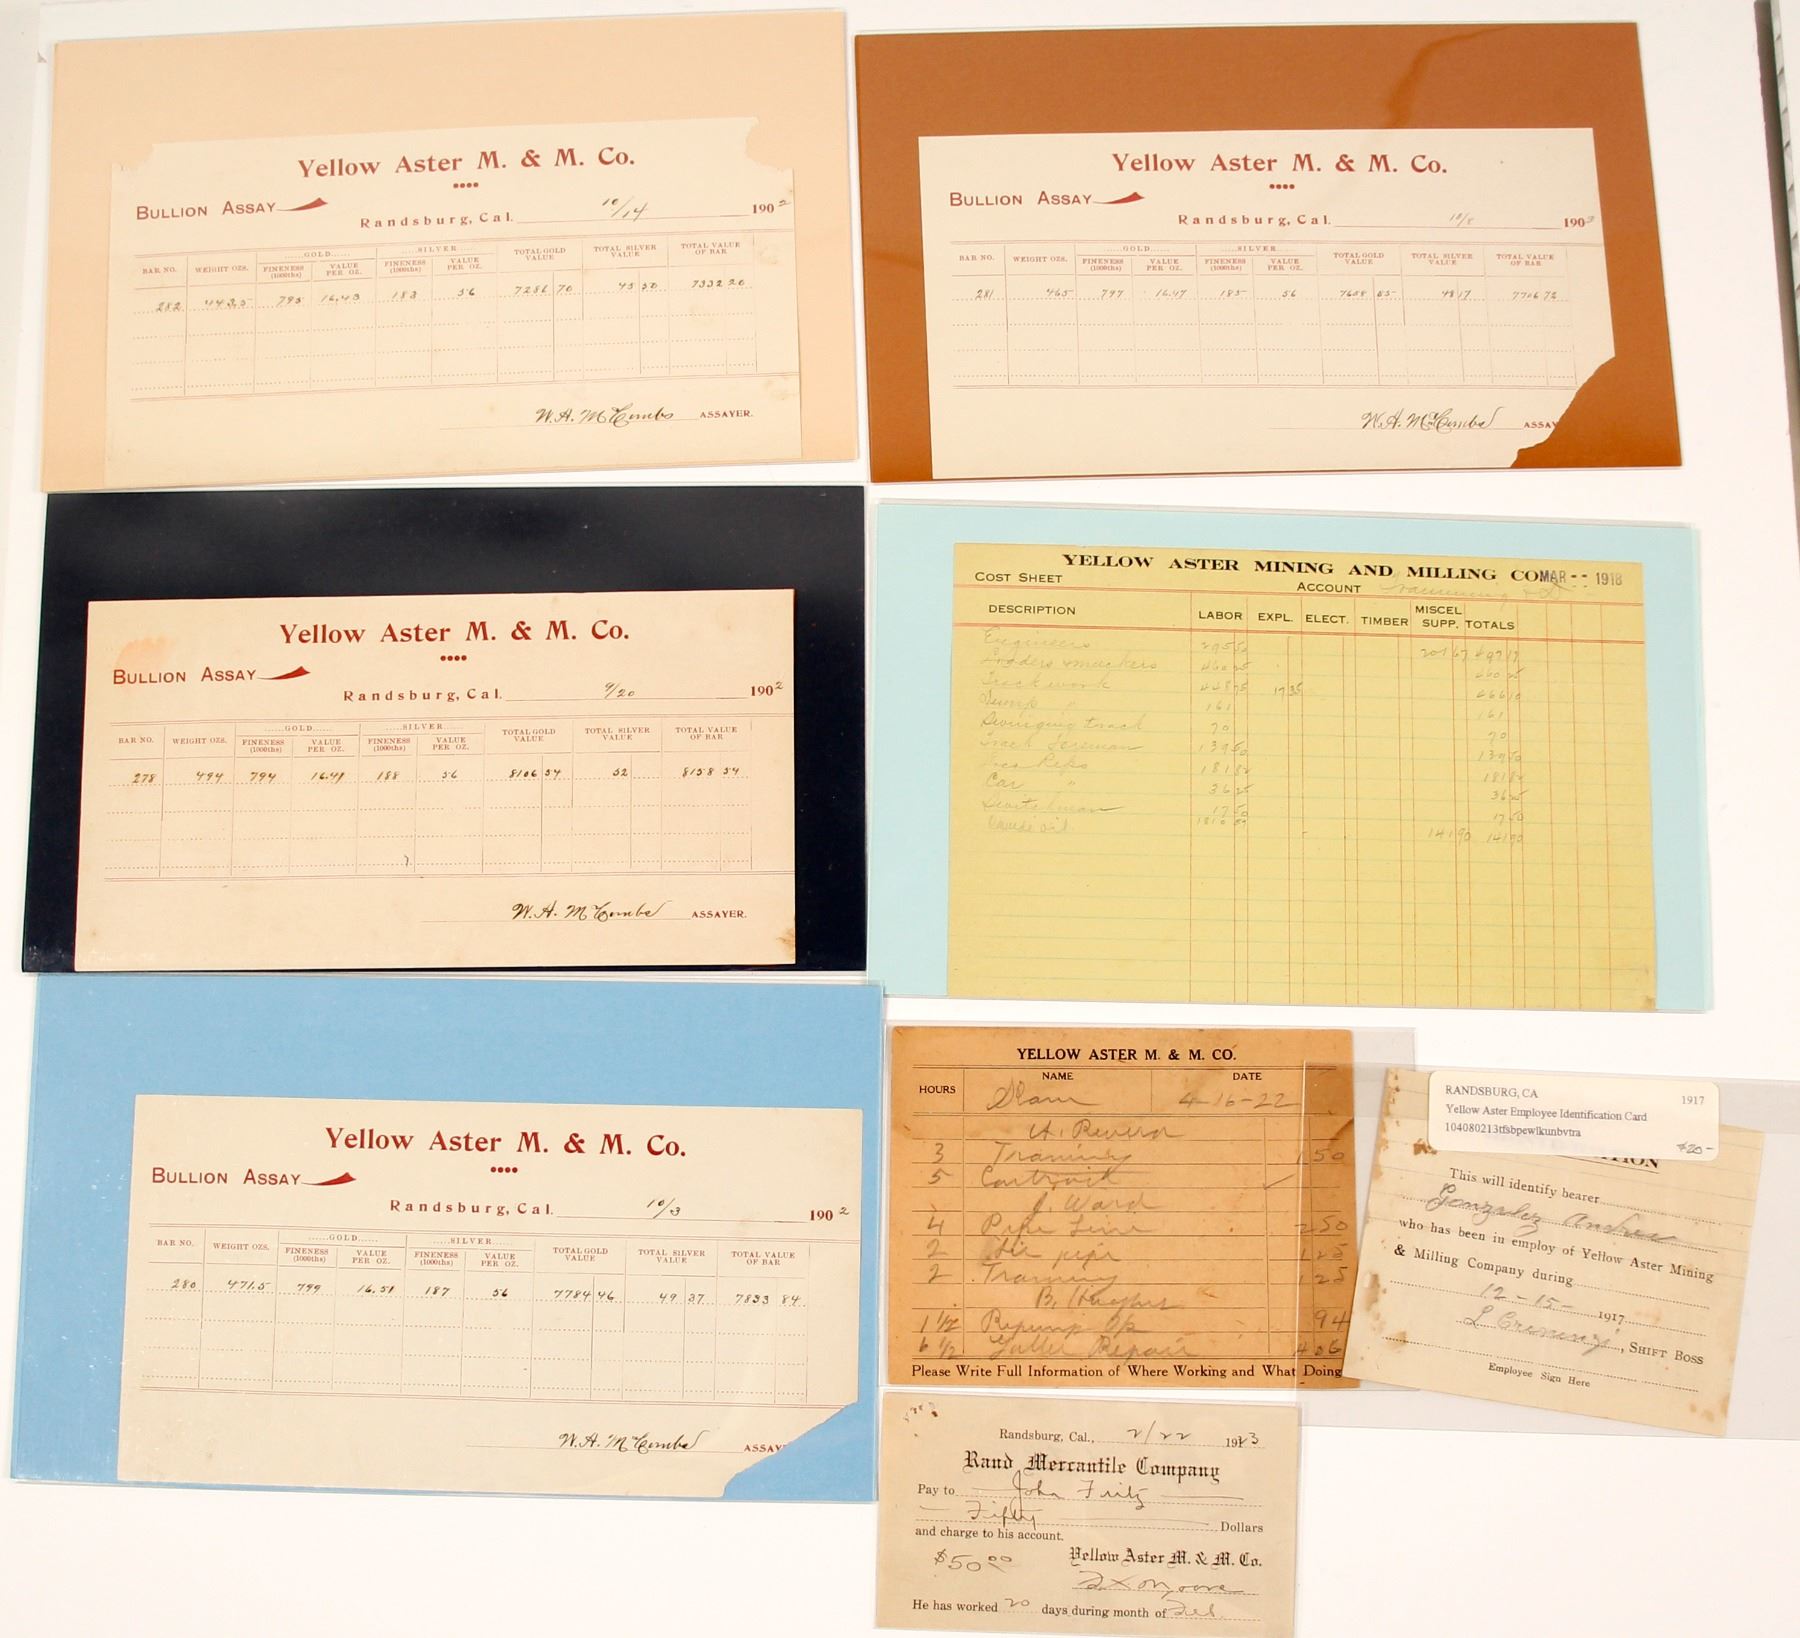 Yellow Aster M. & M. Co.
BULLION ASSAY
Randsburg, Cal. 10/14 1902
GOLD SILVER
BAR NO. WEIGHT OZS. FINENESS (1000ths) VALUE PER OZ. FINENESS (1000ths) VALUE PER OZ. TOTAL GOLD VALUE TOTAL SILVER VALUE TOTAL VALUE OF BAR
282 443.5 795 16.43 183 56 7286 70 45 50 7332 20
W. A. McCombs ASSAYER.
Yellow Aster M. & M. Co.
BULLION ASSAY
Randsburg, Cal. 10/8 1903
GOLD SILVER
BAR NO. WEIGHT OZS. FINENESS (1000ths) VALUE PER OZ. FINENESS (1000ths) VALUE PER OZ. TOTAL GOLD VALUE TOTAL SILVER VALUE TOTAL VALUE OF BAR
281 465 797 16.47 185 56 7658 55 48 17 7706 72
W. A. McCombs ASSAY
Yellow Aster M. & M. Co.
BULLION ASSAY
Randsburg, Cal. 9/20 1902
GOLD SILVER
BAR NO. WEIGHT OZS. FINENESS (1000ths) VALUE PER OZ. FINENESS (1000ths) VALUE PER OZ. TOTAL GOLD VALUE TOTAL SILVER VALUE TOTAL VALUE OF BAR
278 494 794 16.41 188 56 8106 54 52 8158 54
W. A. McCombs ASSAYER.
YELLOW ASTER MINING AND MILLING CO. MAR -- 1918
COST SHEET ACCOUNT Tramming
DESCRIPTION LABOR EXPL. ELECT. TIMBER MISCEL SUPP. TOTALS
Engineers 295 50 201 67 497 17
Loaders & muckers 460 25 460 25
Track work 448 75 17 35 466 10
Dump " 161 161
70 70
Track foreman 139 50 139 50
Loco Reps 181 82 181 82
Car " 36 25 36 25
Switchman 17 50 17 50
oil 1810 57 141 90 141 90
Yellow Aster M. & M. Co.
BULLION ASSAY
Randsburg, Cal. 10/3 1902
GOLD SILVER
BAR NO. WEIGHT OZS. FINENESS (1000ths) VALUE PER OZ. FINENESS (1000ths) VALUE PER OZ. TOTAL GOLD VALUE TOTAL SILVER VALUE TOTAL VALUE OF BAR
280 471.5 799 16.51 187 56 7784 46 49 37 7833 84
W. A. McCombs ASSAY
YELLOW ASTER M. & M. CO.
HOURS NAME DATE
4-16-22
3 Tramming 1 50
5
J. Ward
4 Pipe Line 2 50
2 Air pipe 1 25
2 Tramming 1 25
B. Hughes
1 1/2 Repump Op 94
6 1/2 Repair 4 06
Please Write Full Information of Where Working and What Doing
RANDSBURG, CA 1917
Yellow Aster Employee Identification Card
104080213tfsbpewlkunbvtra
$20-
TION
This will identify bearer
Gonzalez Andres
who has been in employ of Yellow Aster Mining
& Milling Company during
12-15- 1917
, SHIFT BOSS
Employee Sign Here
Randsburg, Cal., 2/22 1913
Rand Mercantile Company
Pay to John Fritz
Fifty Dollars
and charge to his account.
$50 00 Yellow Aster M. & M. Co.
He has worked 20 days during month of Feb.